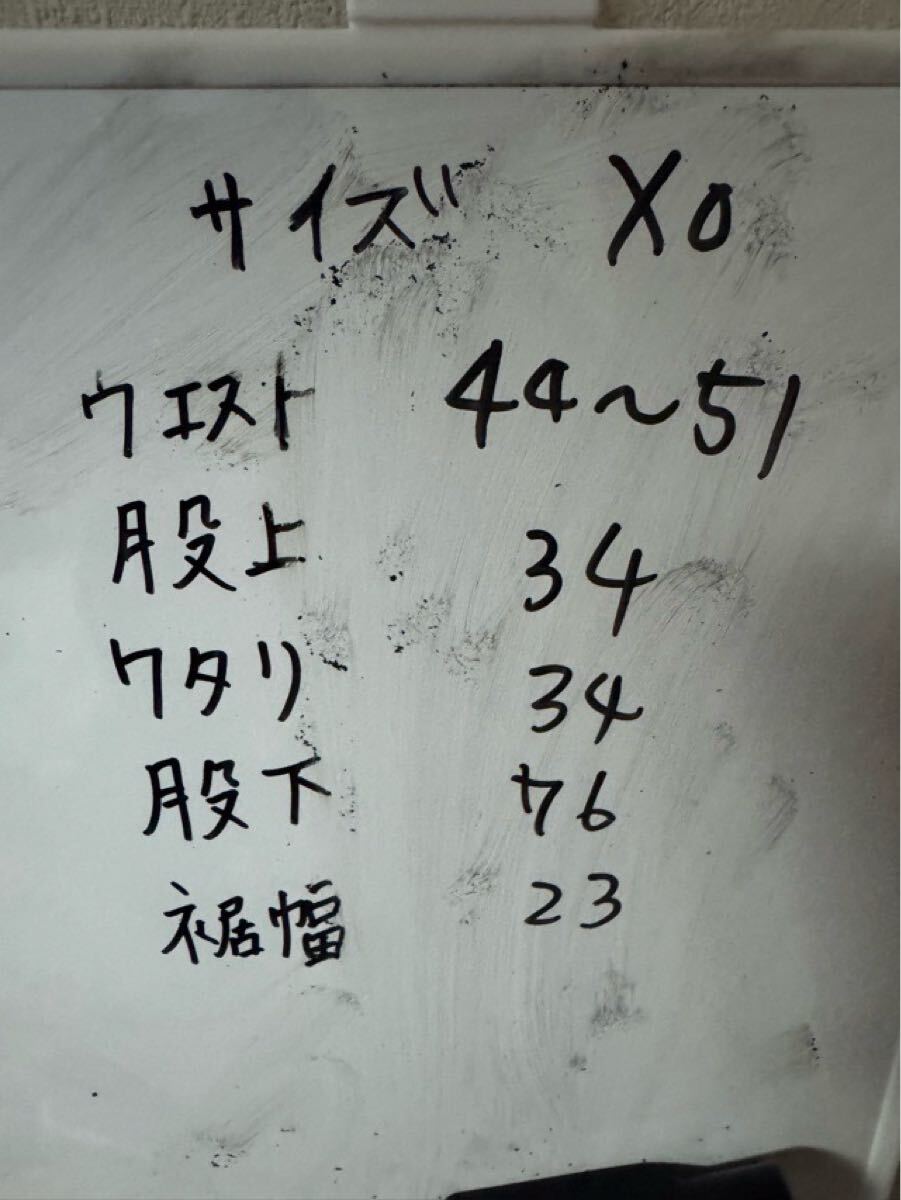 サイズ XO
ウエスト 44～51
股上 34
ワタリ 34
股下 76
裾幅 23